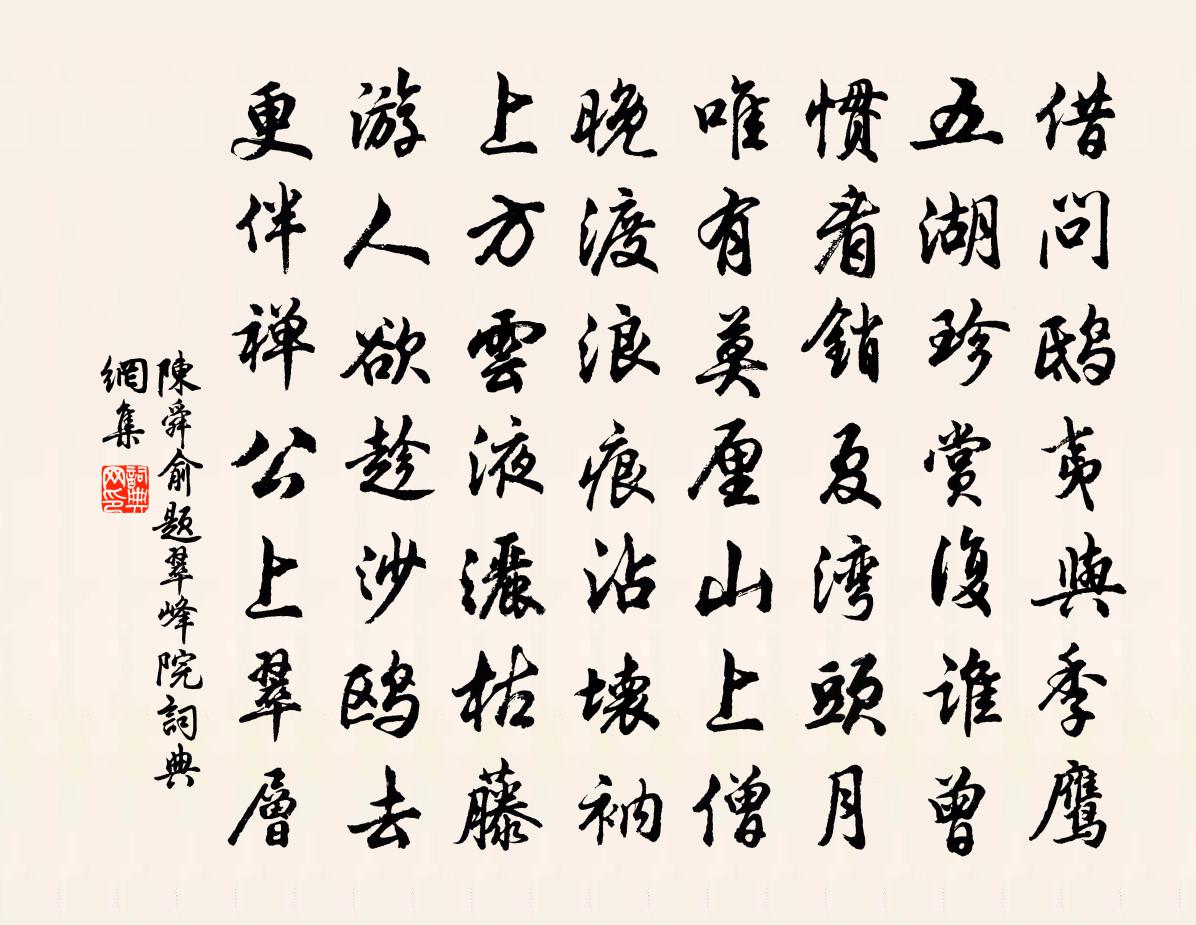 借问鸱夷與季鹰
五湖珍賞復谁曾
惯看銷夏湾頭月
唯有莫厘山上僧
晚渡浪痕沾壊衲
上方雲液灑枯藤
游人欲趁沙鸥去
更伴禅公上翠層
陳舜俞题翠峰院詞典
網集
詞典网印